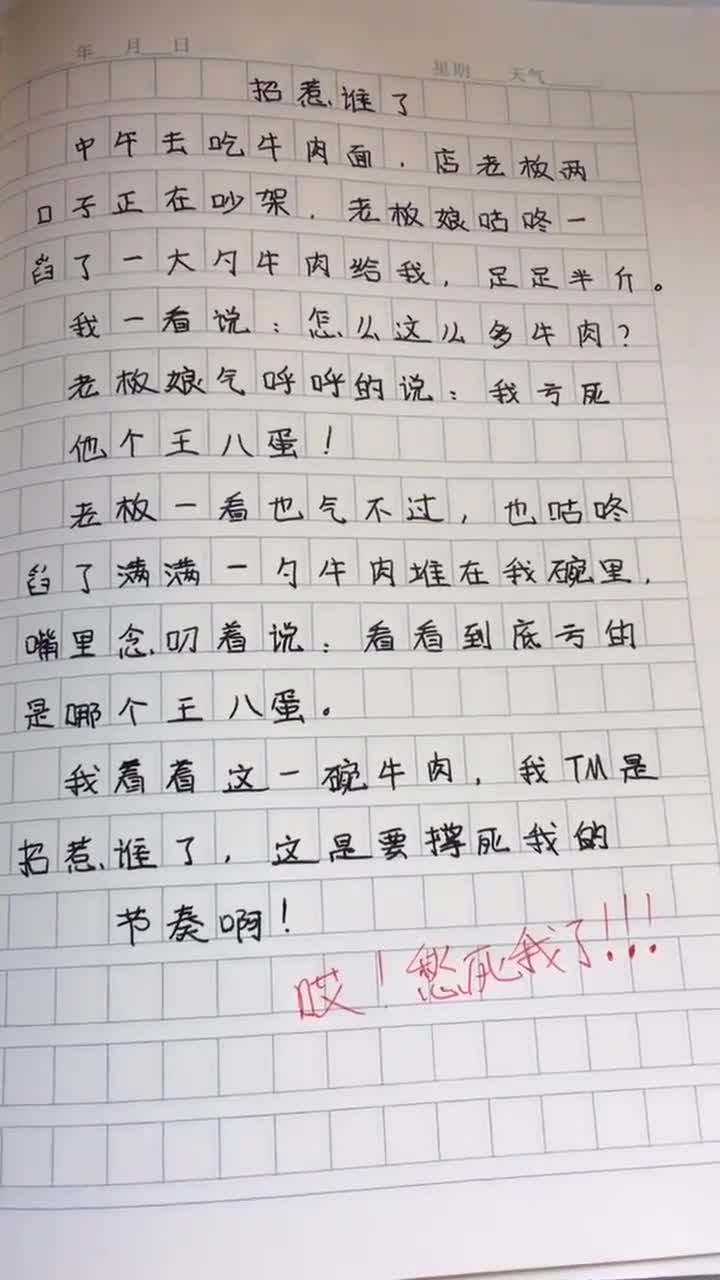 年 月 日
星期 天气
招惹谁了
中午去吃牛肉面，店老板两
口子正在吵架，老板娘咕咚一
舀了一大勺牛肉给我，足足半斤。
我一看说：怎么这么多牛肉？
老板娘气呼呼的说：我亏死
他个王八蛋！
老板一看也气不过，也咕咚
舀了满满一勺牛肉堆在我碗里，
嘴里念叨着说：看看到底亏的
是哪个王八蛋。
我看着这一碗牛肉，我TM是
招惹谁了，这是要撑死我的
节奏啊！
哎！愁死我了!!!